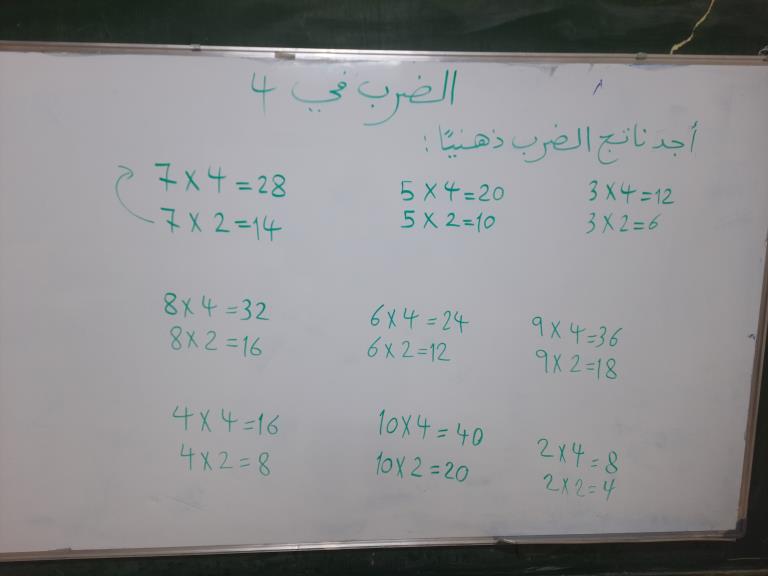 الضرب في 4
أجد ناتج الضرب ذهنيًا :
3 × 4 = 12
3 × 2 = 6
5 × 4 = 20
5 × 2 = 10
7 × 4 = 28
7 × 2 = 14
9 × 4 = 36
9 × 2 = 18
6 × 4 = 24
6 × 2 = 12
8 × 4 = 32
8 × 2 = 16
2 × 4 = 8
2 × 2 = 4
10 × 4 = 40
10 × 2 = 20
4 × 4 = 16
4 × 2 = 8